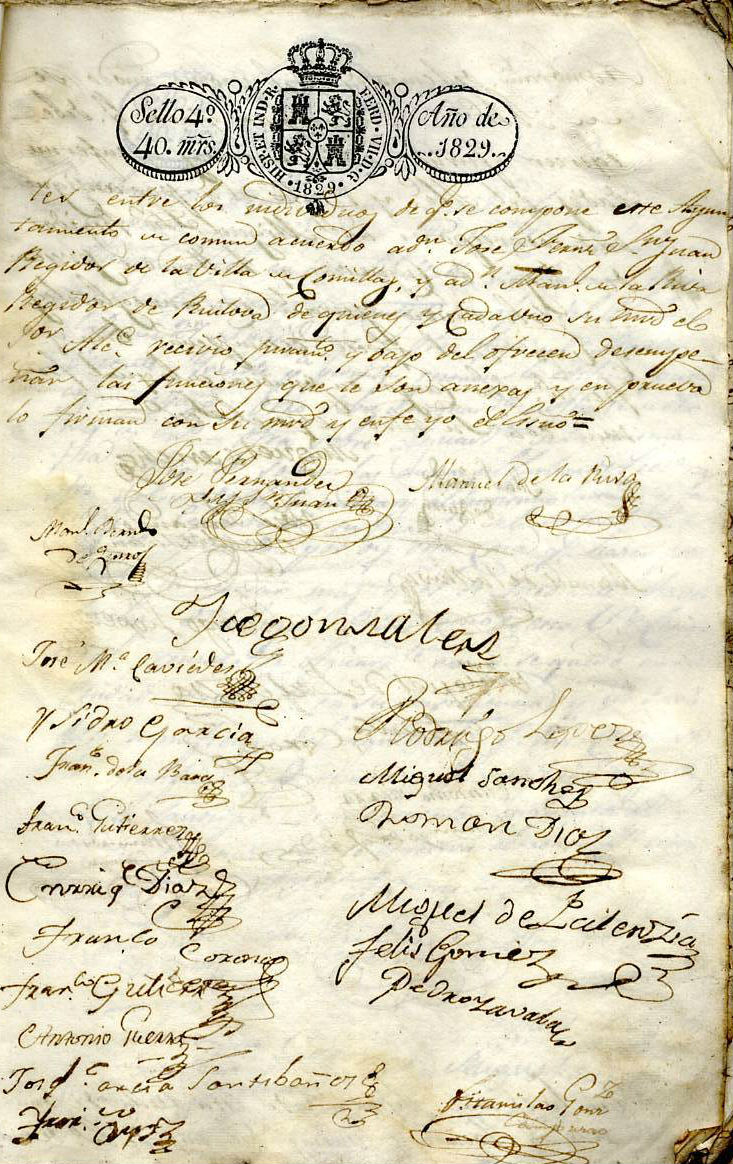 Sello 4º
40. mrs.
HISP. ET IND. R.
FERD. VII. D. G.
1829
Año de
1829.
tes entre los individuos de qe. se compone este Ayun
tamiento de comun acuerdo a dn. Jose Fernz. de Sn. Juan
Regidor de la Villa de Comillas, y a dn. Manl. de la Riva
Regidor de Ruilova de quienes y cada uno su mrd el
Sor. Alce. recivio juramto. y bajo del ofrecen desempe-
ñar las funciones que le son anexas y en prueba
lo firman con su mrd y en fe yo el Essno =
Jose Fernandez
Sn. Juan
Manuel de la Riva
Manl.
de Quiros
Jose Mª Caviedes
Ysidro Garcia
Rodrigo Lopez
Franco. de la
Miguel Sanchez
Franco. Gutierrez
Roman Diaz
Enrriqe Diaz
Miguel de Palenzia
Franco
Felis Gomez
Franco Gutierrez
Pedro Zavala
Antonio Guerra
Jose Garcia Santibañez
Estanislao Gonz